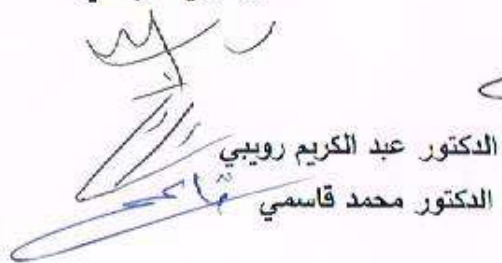 الدكتور عبد الكريم رويبي
الدكتور محمد قاسمي